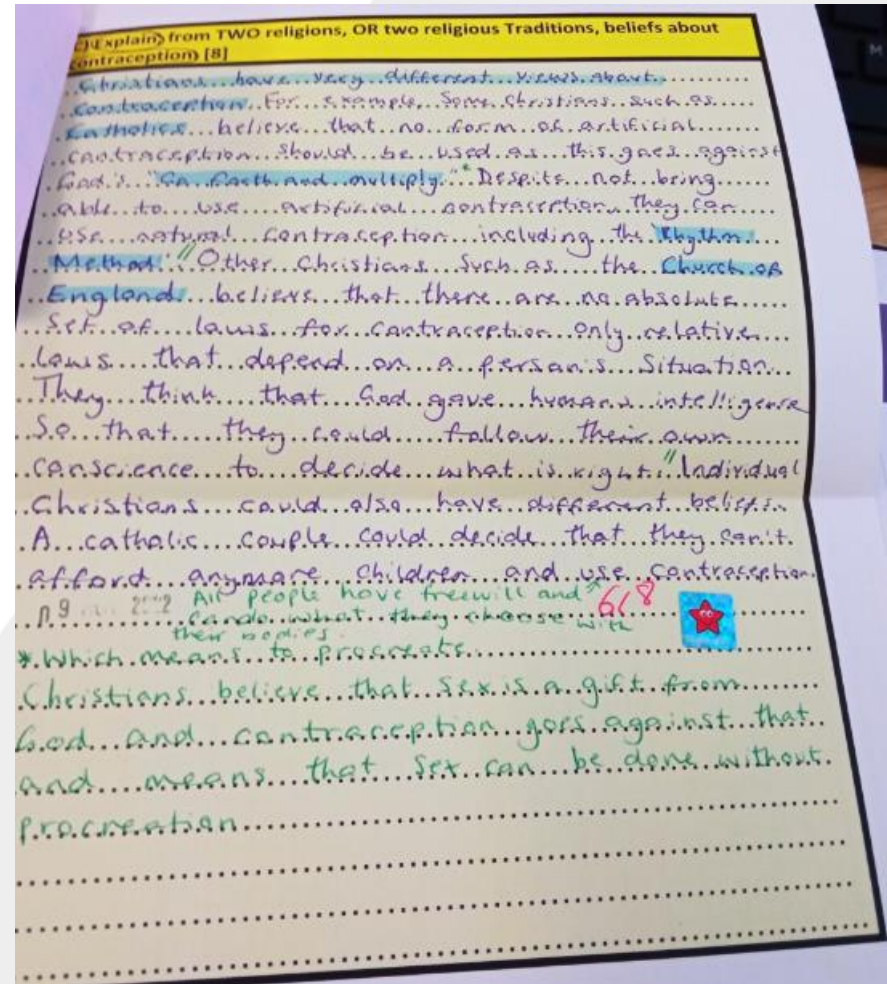 c) Explain from TWO religions, OR two religious Traditions, beliefs about
contraception) [8]
Christians have very different views about
contraception. For example, Some Christians such as
Catholics believe that no form of artificial
contraception should be used as this goes against
God's "Go forth and multiply."* Despite not being
able to use artificial contraception, they can
use natural contraception including the 'Rhythm
Method'. // Other Christians such as the Church of
England believe that there are no absolute
set of laws for contraception only relative
laws that depend on a person's situation.
They think that God gave humans intelligence
So that they could follow their own
conscience to decide what is right. // Individual
Christians could also have different beliefs.
A catholic couple could decide that they can't
afford anymore children and use contraception.
All people have freewill and 6/8
can do what they choose with
their bodies.
* Which means to procreate.
Christians believe that sex is a gift from
God and contraception goes against that
and means that sex can be done without
procreation